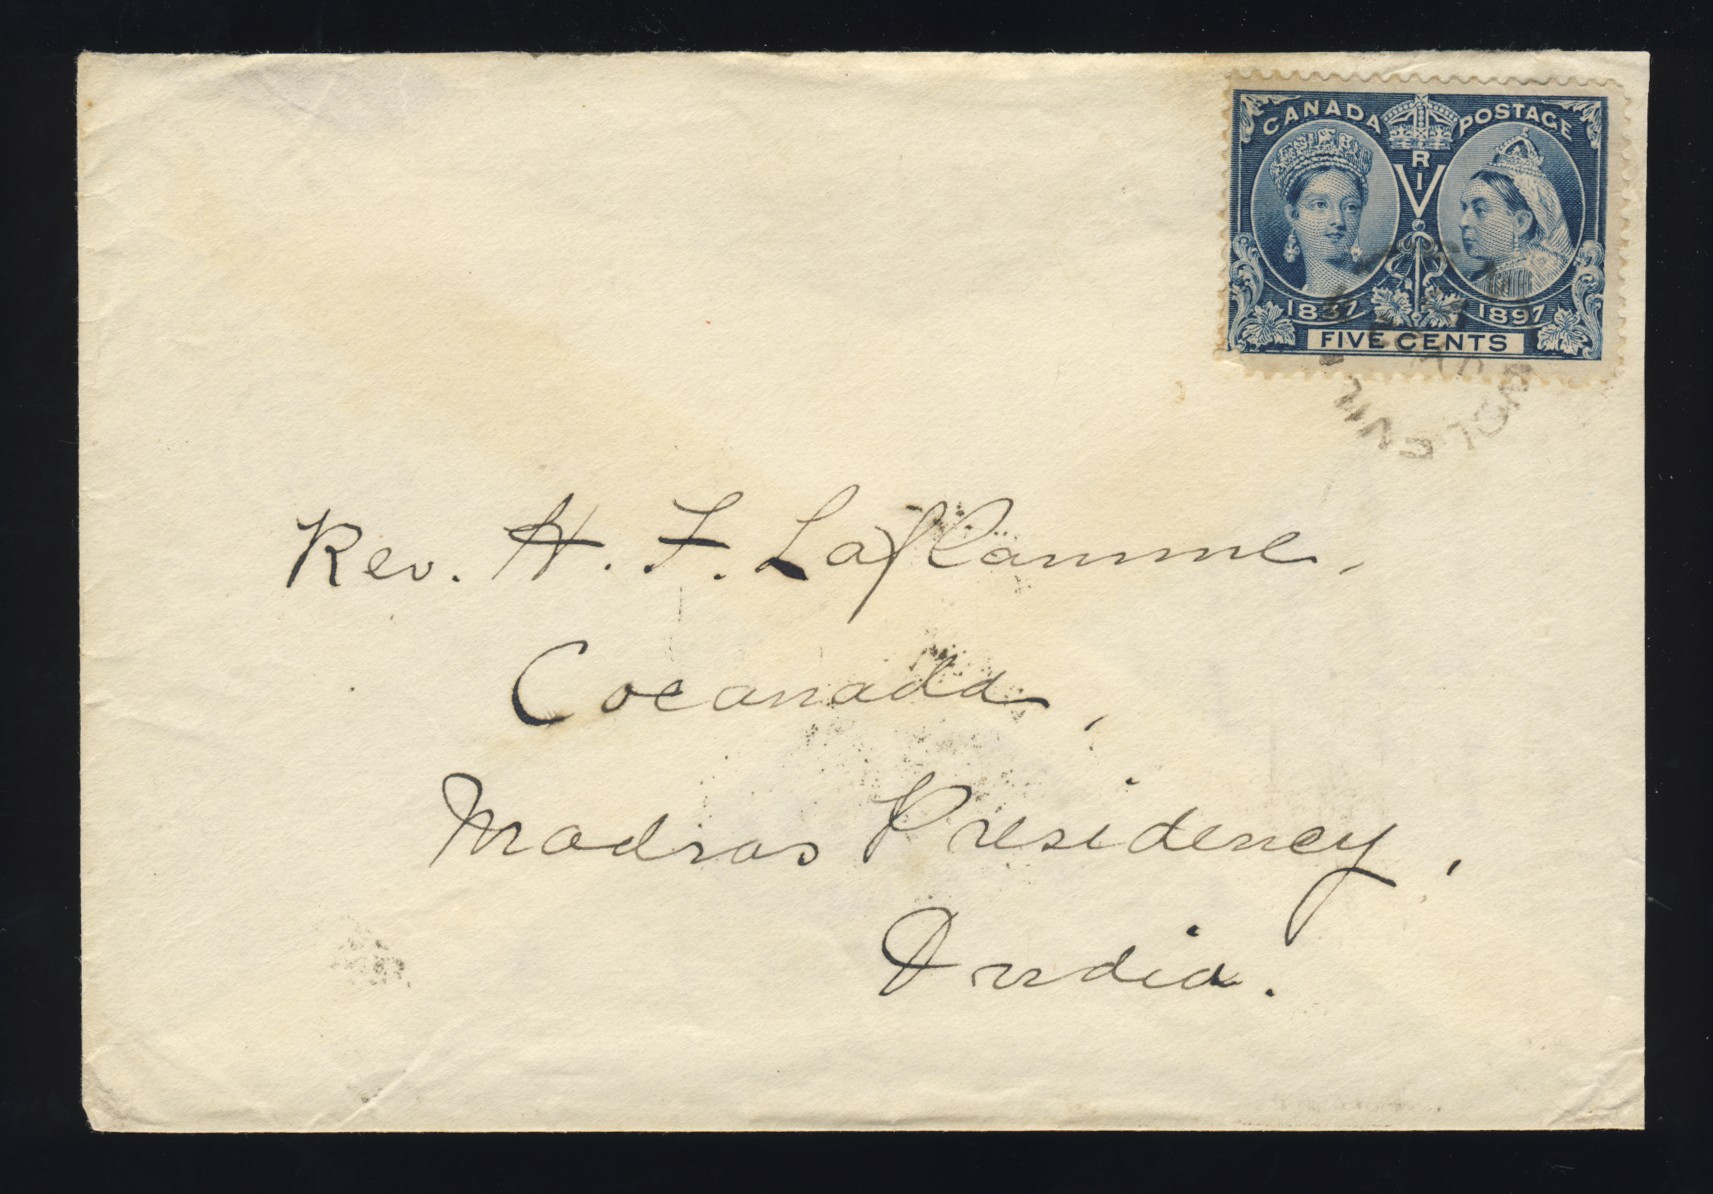 CANADA POSTAGE
VRI
1837 1897
FIVE CENTS
Rev. H. F. Laflamme,
Cocanada,
Madras Presidency,
India.